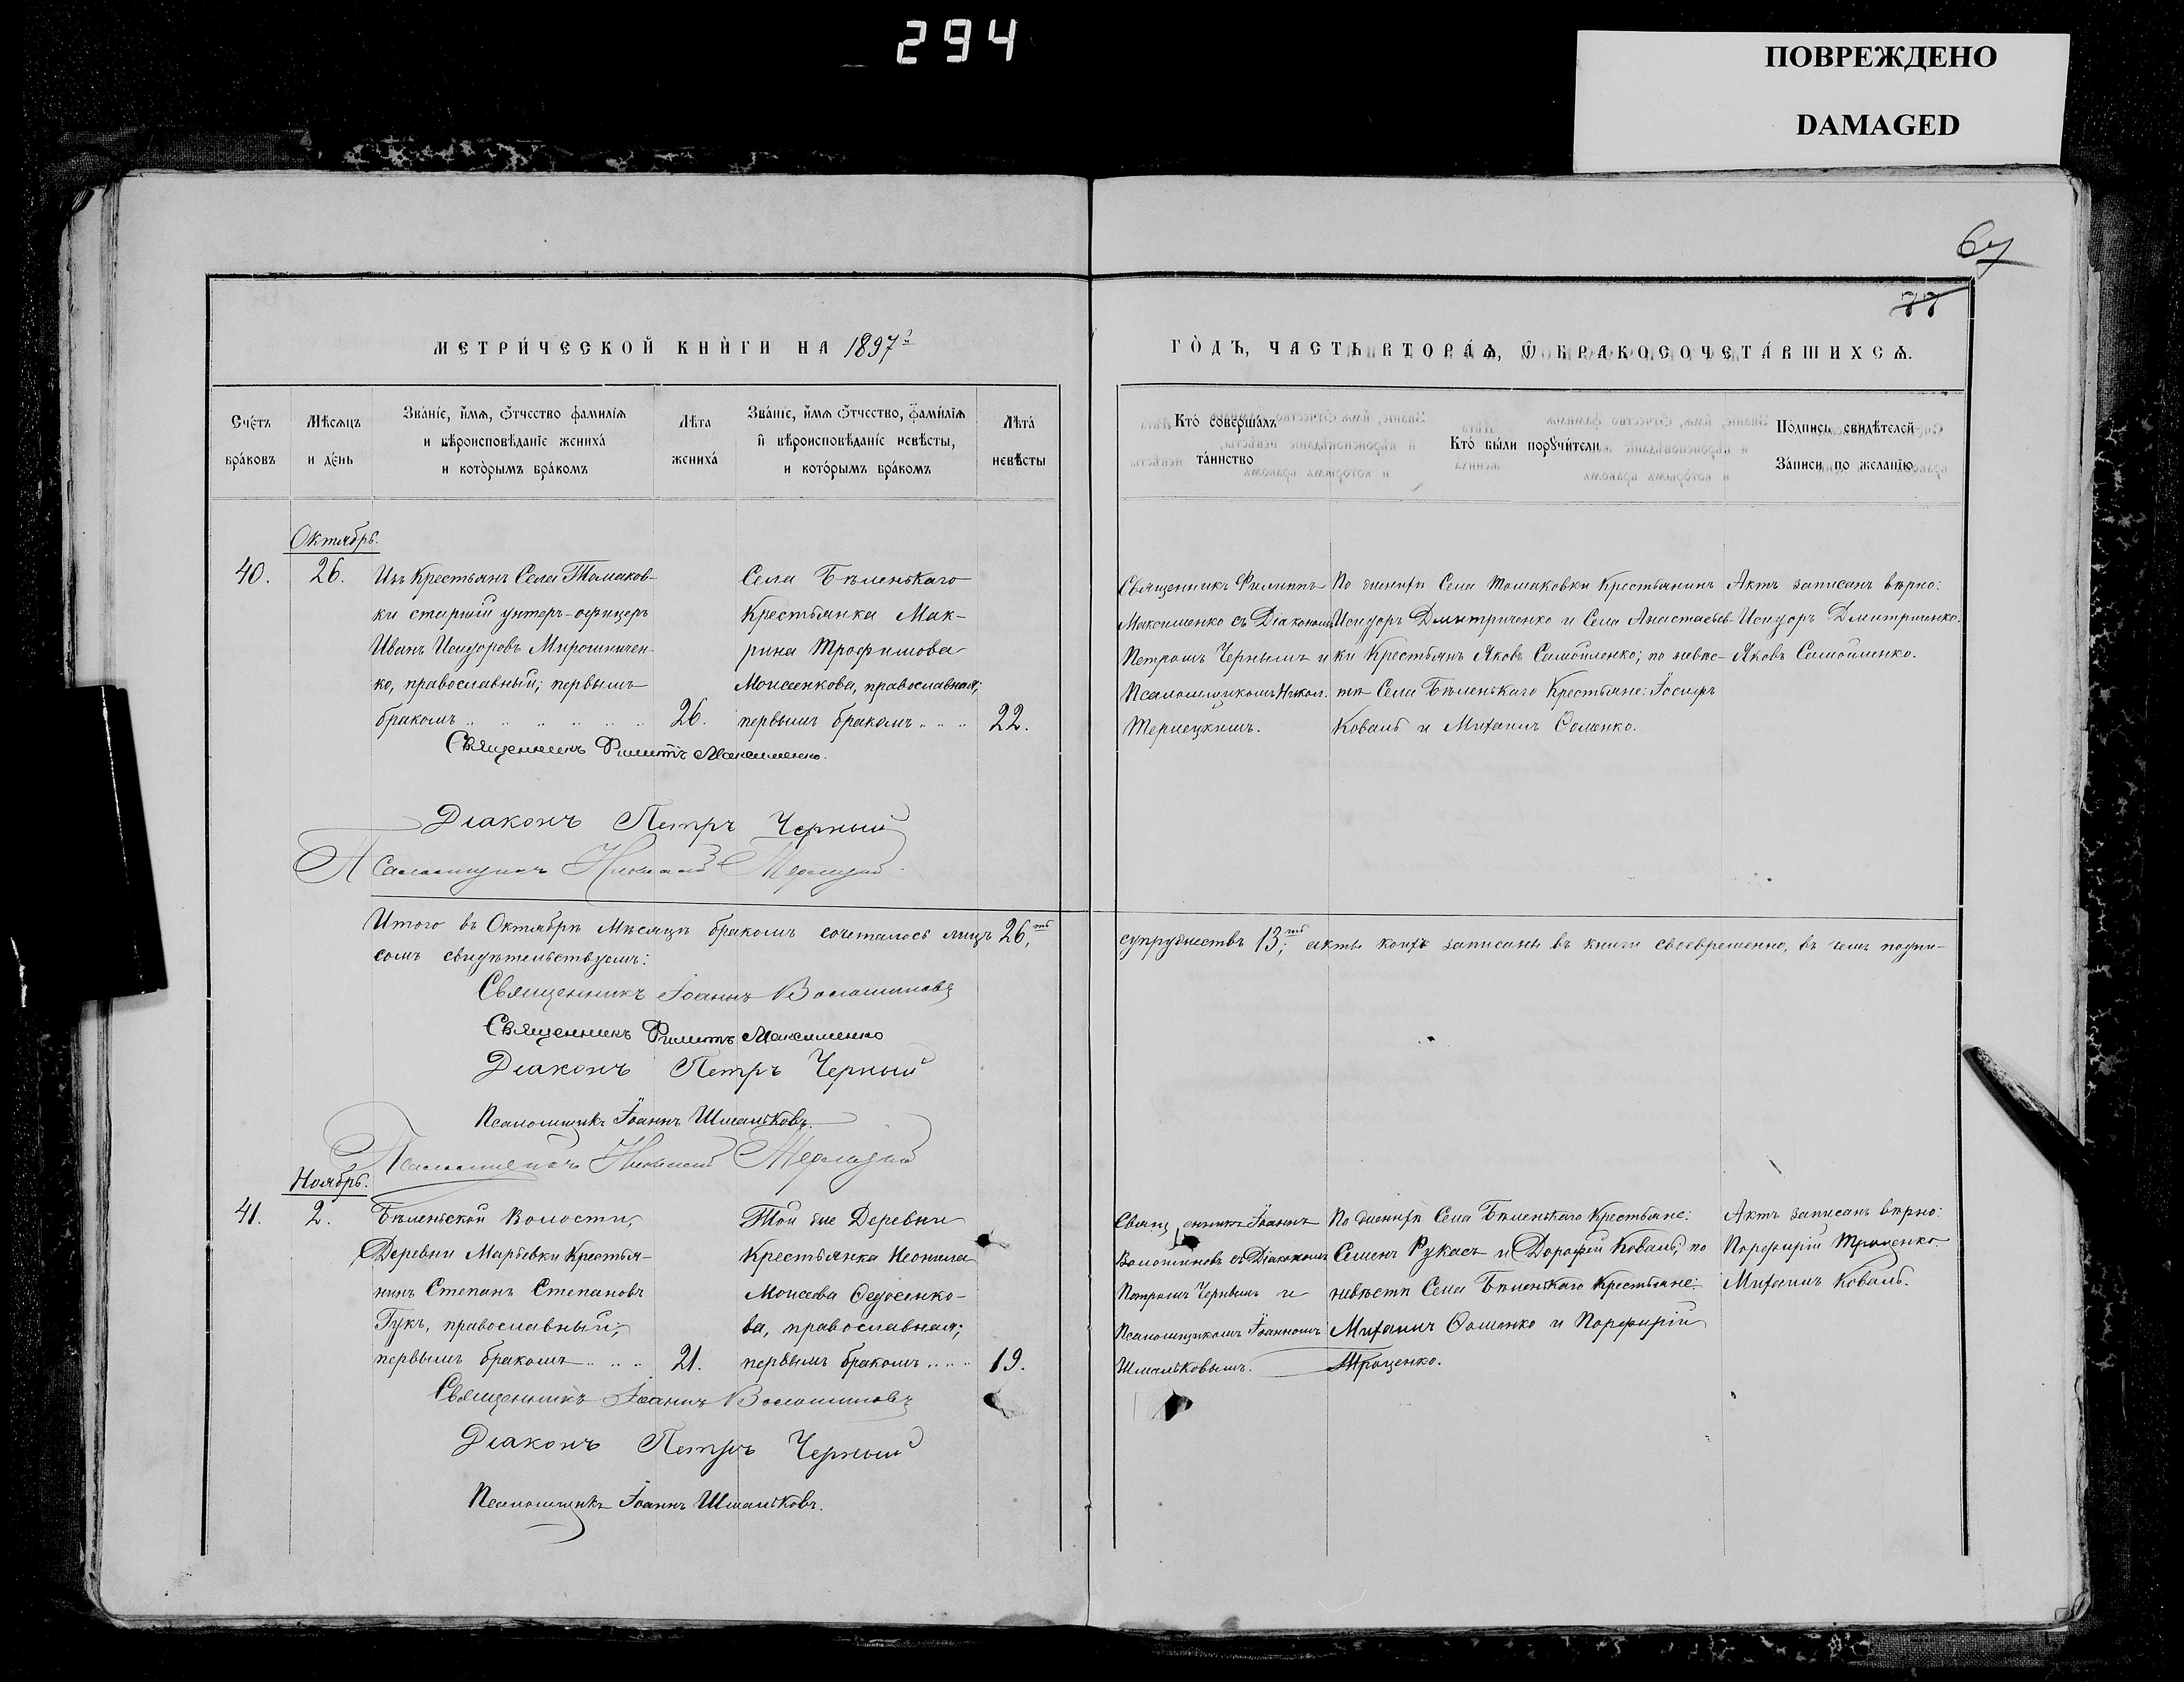 294
ПОВРЕЖДЕНО
DAMAGED
67
77
МЕТРИ́ЧЕСКОЙ КНИ́ГИ НА 1897 г
ГО́ДЪ, ЧАСТЬ ВТОРА́Ѧ, Ѡ БРАКОСОЧЕТА́ВШИХСѦ.
Сче́тъ бра́ковъ
Мѣ́сѧцъ и де́нь
Зва́нїе, и́мѧ, ѻ́тчество фами́лїѧ и вѣроисповѣ́данїе жениха́ и кото́рымъ бра́комъ
Лѣ́та жениха́
Зва́нїе, и́мѧ ѻ́тчество, фами́лїѧ и вѣроисповѣ́данїе невѣ́сты, и кото́рымъ бра́комъ
Лѣ́та невѣ́сты
Кто̀ соверша́лъ та́инство
Кто̀ бы́ли порꙋчи́тели
По́дпись свидѣ́телей За́писи по жела́нїю
Октябрь.
40.
26.
Изъ Крестьянъ Села Томаков-
ки старшій унтеръ-офицеръ
Иванъ Исидоровъ Мирошничен-
ко, православный; первымъ
бракомъ .. .. .. .. .. ..
26.
Села Бѣленькаго
Крестьянка Мак-
рина Трофимова
Моисеенкова, православная;
первымъ бракомъ .. .. ..
22.
Священникъ Филиппъ
Максименко съ Діакономъ
Петромъ Чернымъ и
Псаломщикомъ Никол.
Терлецкимъ.
По женихѣ Села Томаковки Крестьянинъ
Исидоръ Дмитриченко и Села Анастасьев-
ки Крестьянъ Яковъ Самойленко; по невѣс-
тѣ Села Бѣленькаго Крестьяне: Іосифъ
Коваль и Михаилъ Ѳоменко.
Актъ записанъ вѣрно:
Исидоръ Дмитриченко.
Яковъ Самойленко.
Священникъ Филиппъ Максименко.
Діаконъ Петръ Черный
Псаломщикъ Николай Терлецкій
Итого въ Октябрѣ Мѣсяцѣ бракомъ сочеталось лицъ 26,ть супружествъ 13;ть акты коихъ записаны въ книги своевременно, въ чемъ подпи-
сомъ свидѣтельствуемъ:
Священникъ Іоаннъ Волошиновъ
Священникъ Филиппъ Максименко
Діаконъ Петръ Черный
Псаломщикъ Іоаннъ Шмальковъ.
Псаломщикъ Николай Терлецкій
Ноябрь.
41.
2.
Бѣленьской Волости,
Деревни Марьевки Крестья-
нинъ Степанъ Степановъ
Гукъ, православный;
первымъ бракомъ .. .. ..
21.
Той же Деревни
Крестьянка Неонила
Моисеева Ѳедосенко-
ва, православная;
первымъ бракомъ .. .. ..
19.
Священникъ Іоаннъ
Волошиновъ съ Діакономъ
Петромъ Чернымъ и
Псаломщикомъ Іоанномъ
Шмальковымъ.
По женихѣ Села Бѣленькаго Крестьяне:
Семенъ Рукасъ и Дорофей Коваль; по
невѣстѣ Села Бѣленькаго Крестьяне:
Михаилъ Ѳоменко и Порфирій
Троценко.
Актъ записанъ вѣрно:
Порфирій Троценко.
Михаилъ Коваль.
Священникъ Іоаннъ Волошиновъ
Діаконъ Петръ Черный
Псаломщикъ Іоаннъ Шмальковъ.